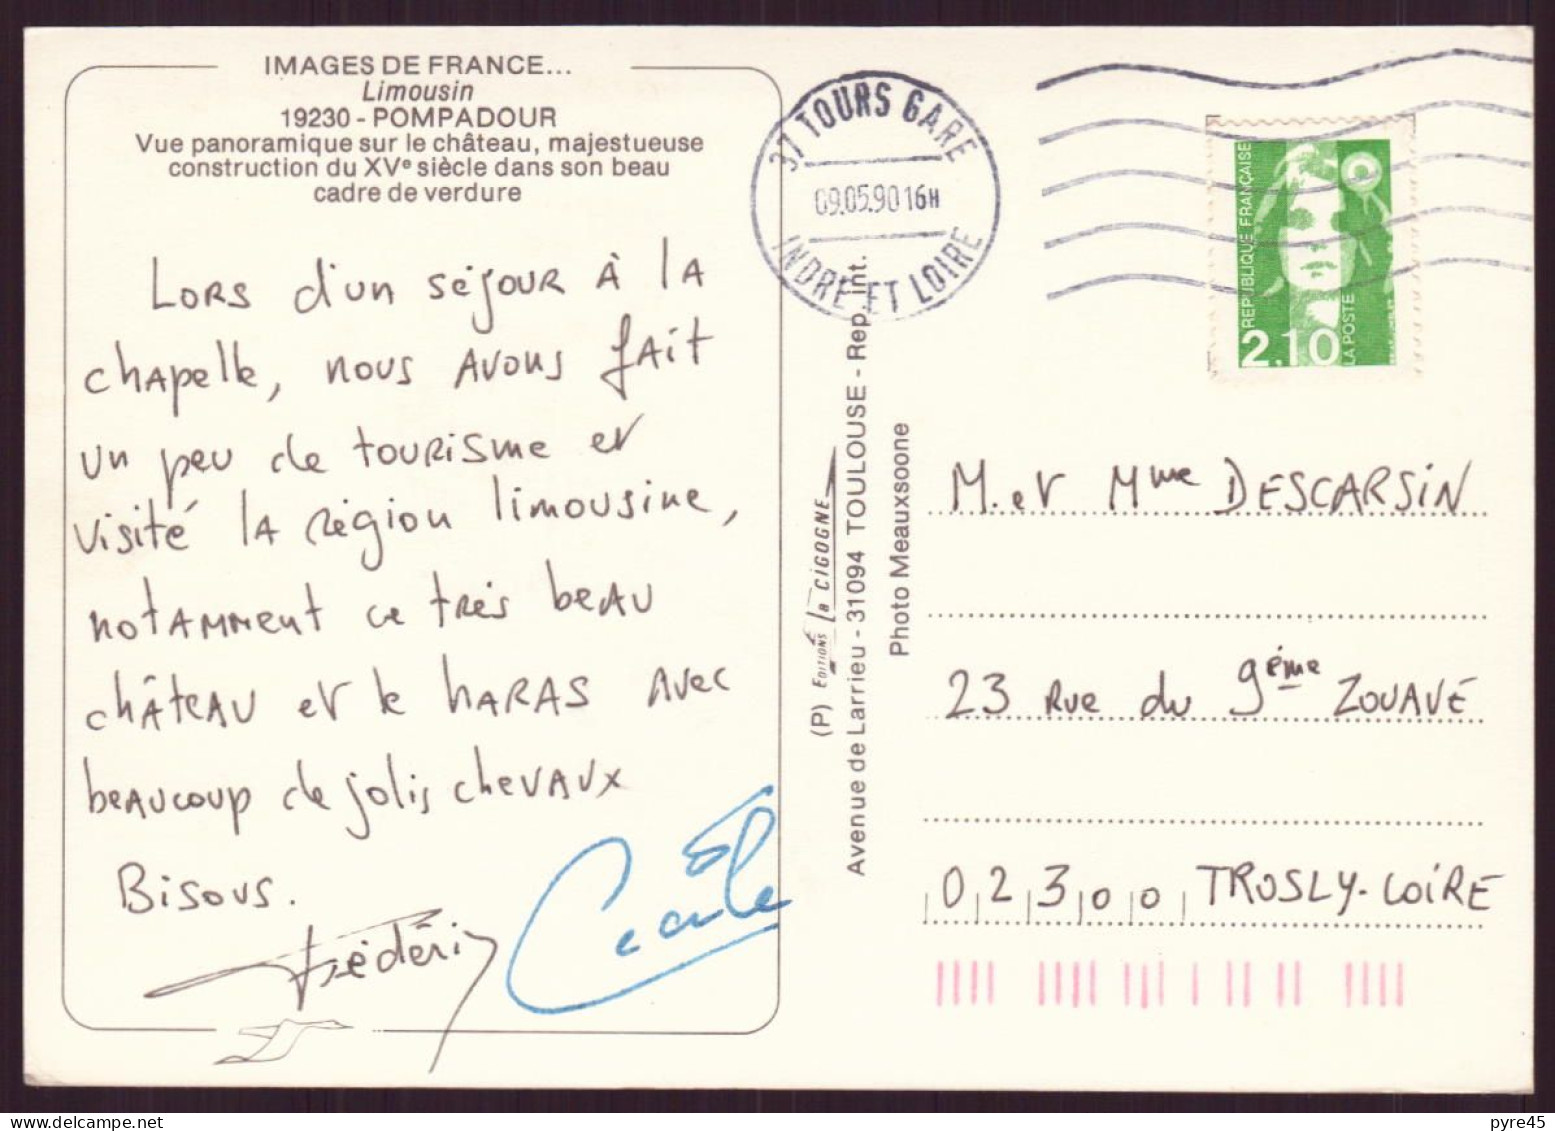 IMAGES DE FRANCE...
Limousin
19230 - POMPADOUR
Vue panoramique sur le château, majestueuse
construction du XVe siècle dans son beau
cadre de verdure
Lors d'un séjour à la
chapelle, nous avons fait
un peu de tourisme et
visité la région limousine,
notamment ce très beau
château et le haras avec
beaucoup de jolis chevaux
Bisous.
Frédéric
Cécile
37 TOURS GARE
09.05.90 16H
INDRE ET LOIRE
REPUBLIQUE FRANÇAISE
2,10
LA POSTE
(P) EDITIONS la CIGOGNE
Avenue de Larrieu - 31094 TOULOUSE - Rep. Int.
Photo Meauxsoone
M. et Mme DESCARSIN
23 Rue du 9ème ZOUAVE
02300 TROSLY-LOIRE
pyre45